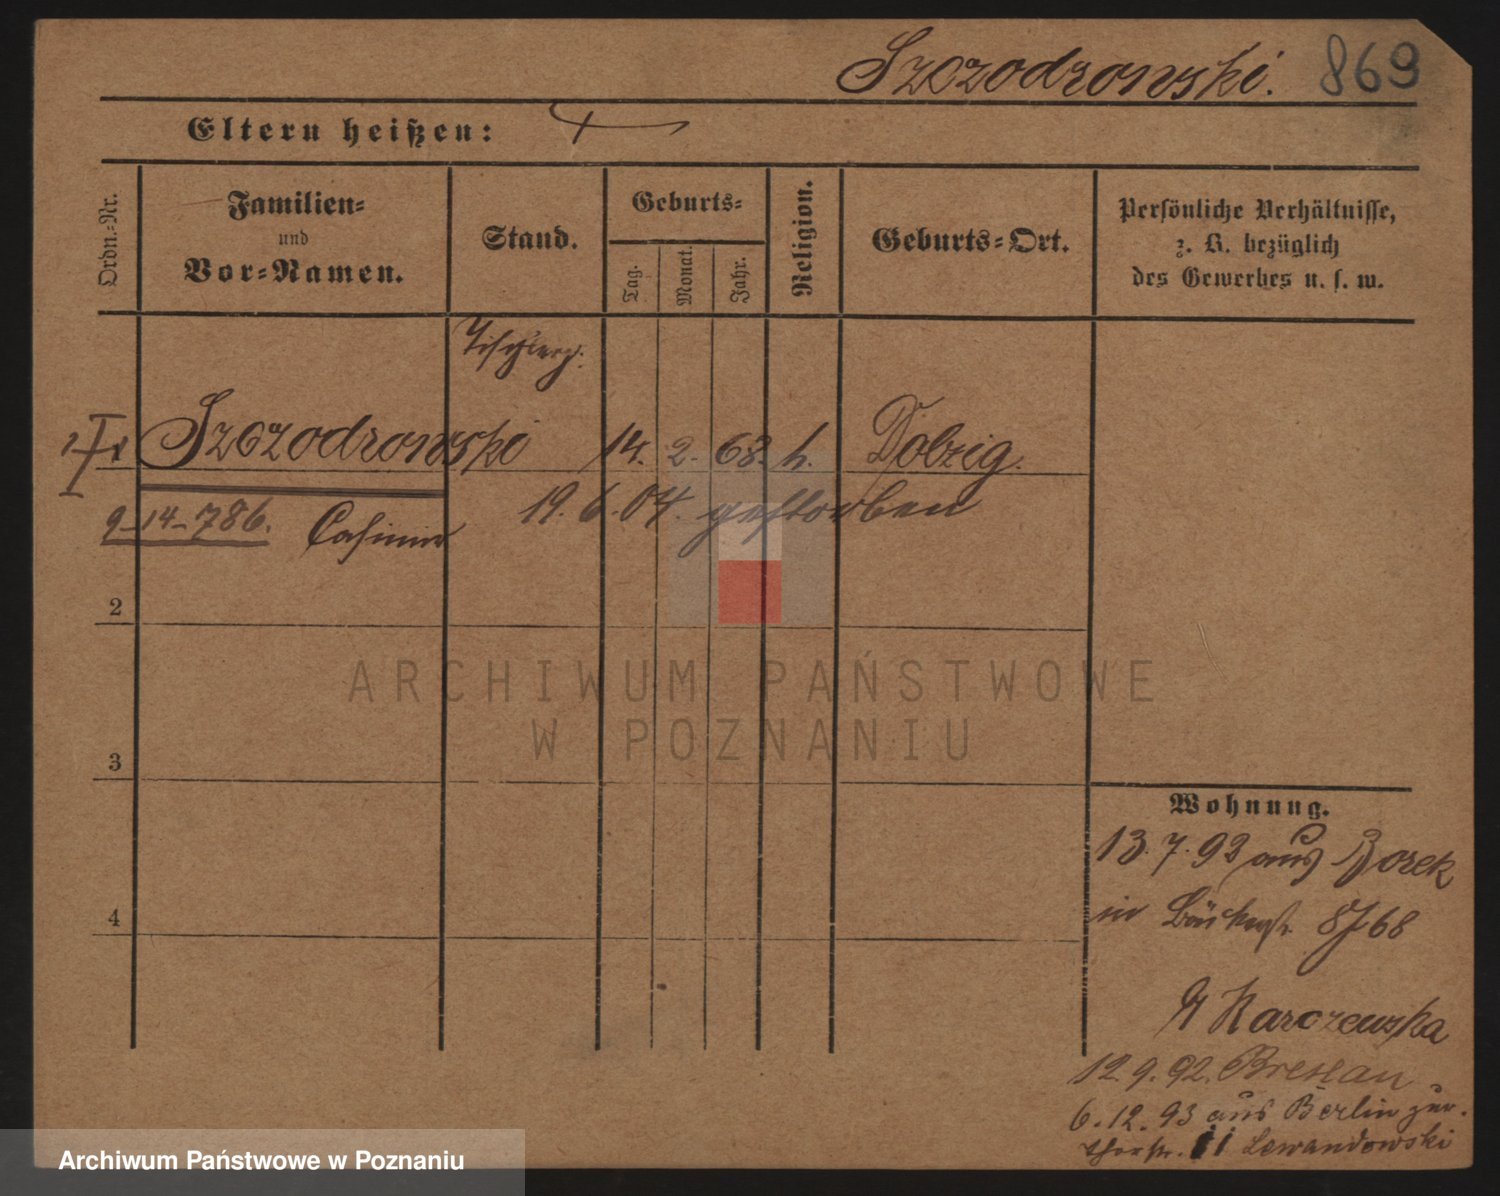 Szczodrowski. 869
Eltern heißen:
Ordn.-Nr.
Familien-
und
Vor-Namen.
Stand.
Geburts-
Tag.
Monat.
Jahr.
Religion.
Geburts-Ort.
Persönliche Verhältnisse,
z. B. bezüglich
des Gewerbes u. s. w.
Tischlerg.
1 Szczodrowski 14. 2. 68. k. Dolzig.
9-14-786. Casimir 19. 6. 04. gestorben
2
3
4
Wohnung.
13. 7. 92 aus Borek
in Bäckerstr. 8 68
Karczewska
12. 9. 92. Breslau
6. 12. 93 aus Berlin zur.
11 Lewandowski
ARCHIWUM PAŃSTWOWE
W POZNANIU
Archiwum Państwowe w Poznaniu